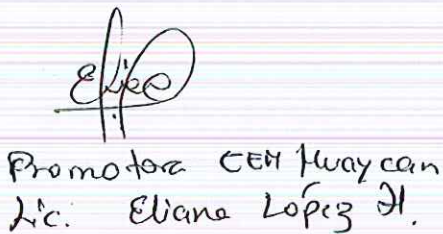 Promotora CEM Huaycan
Lic. Eliana López H.